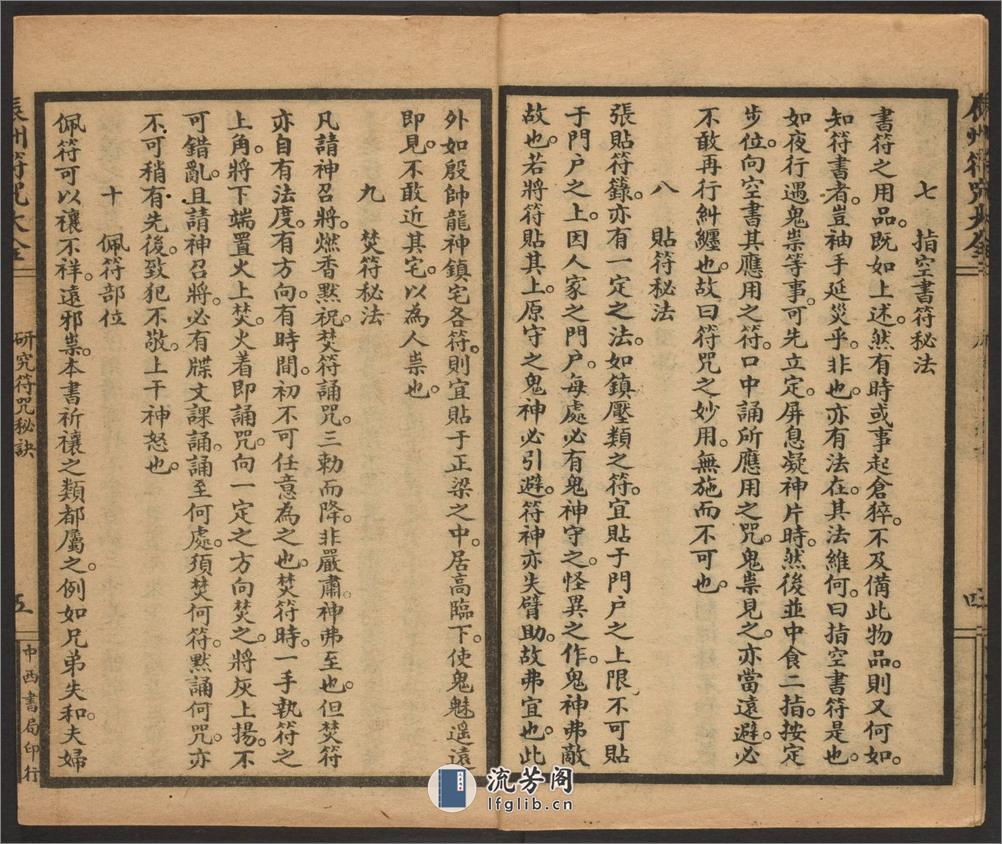 七　指空書符秘法
書符之用品。既如上述。然有時或事起倉猝。不及備此物品。則又何如。
知符書者。豈袖手延災乎。非也。亦有法在。其法維何。曰指空書符是也。
如夜行遇鬼祟等事。可先立定。屏息凝神片時。然後並中食二指。按定
步位。向空書其應用之符。口中誦所應用之咒。鬼祟見之。亦當遠避。必
不敢再行糾纏也。故曰符咒之妙用。無施而不可也。
八　貼符秘法
張貼符籙。亦有一定之法。如鎮壓類之符。宜貼于門戶之上限。不可貼
于門戶之上。因人家之門戶。每處必有鬼神守之。怪異之作。鬼神弗敵
故也。若將符貼其上。原守之鬼神必引避。符神亦失臂助。故弗宜也。此
外如殷帥龍神鎮宅各符。則宜貼于正梁之中。居高臨下。使鬼魅遥遠
即見。不敢近其宅。以為人祟也。
九　焚符秘法
凡請神召將。燃香默祝。焚符誦咒。三勅而降。非嚴肅神弗至也。但焚符
亦自有法度。有方向。有時間。初不可任意為之也。焚符時。一手執符之
上角。將下端置火上焚。火着即誦咒。向一定之方向焚之。將灰上揚。不
可錯亂。且請神召將。必有牒文課誦。誦至何處。須焚何符。默誦何咒。亦
不可稍有先後。致犯不敬。上干神怒也。
十　佩符部位
佩符可以禳不祥。遠邪祟。本書祈禳之類都屬之。例如兄弟失和。夫婦
辰州符咒大全
研究符咒秘訣
五
中西書局印行
州符咒大全
流芳阁
lfglib.cn